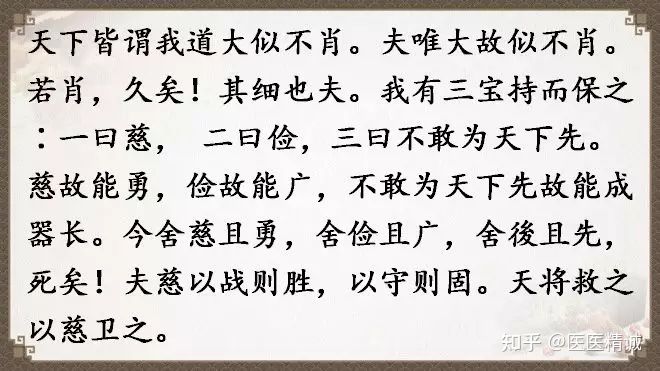 天下皆谓我道大似不肖。夫唯大故似不肖。
若肖，久矣！其细也夫。我有三宝持而保之
：一曰慈， 二曰俭，三曰不敢为天下先。
慈故能勇，俭故能广，不敢为天下先故能成
器长。今舍慈且勇，舍俭且广，舍後且先，
死矣！夫慈以战则胜，以守则固。天将救之
以慈卫之。
知乎 @医医精诚